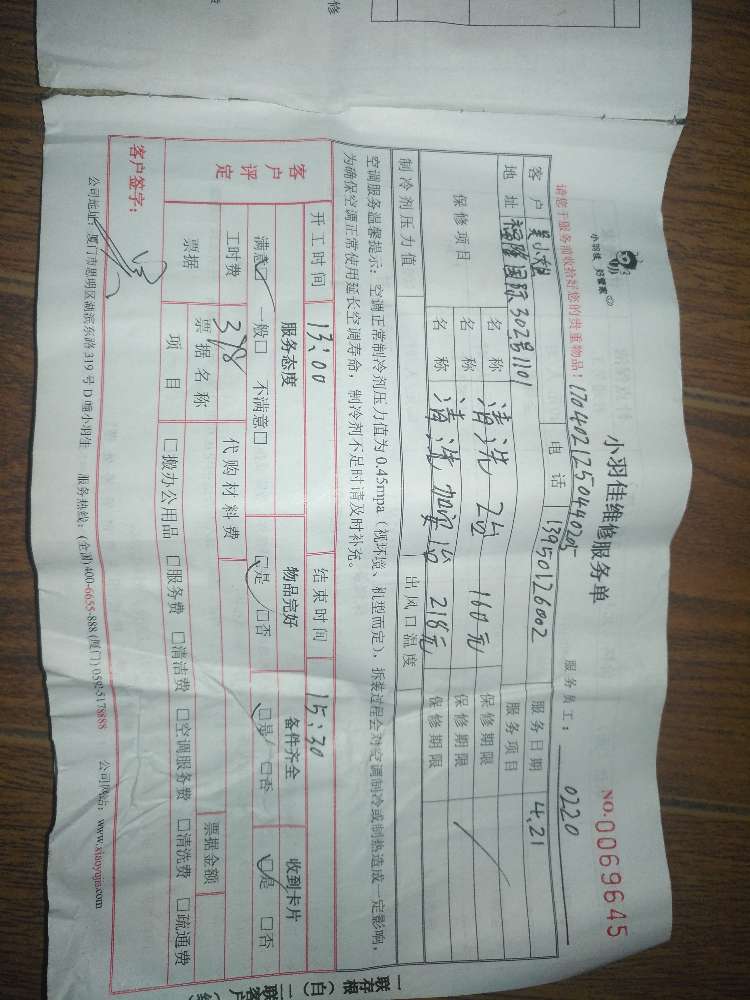 修
小羽佳 好管家
小羽佳维修服务单
NO. 0069645
请您于服务前收拾好您的贵重物品!
1704021250440205
服务员工: 0220
客户
电话 13950126002
服务日期 4.21
地址 福隆国际302号1101
服务项目
保修项目
名称 清洗2台 160元 保修期限
名称 保修期限
名称 清洗加氟1台 218元 保修期限
制冷剂压力值
出风口温度
空调服务温馨提示:空调正常制冷剂压力值为0.45mpa(视环境、机型而定),拆装过程会对空调制冷或制热造成一定影响,
为确保空调正常使用延长空调寿命,制冷剂不足时请及时补充。
开工时间 13:00 结束时间 15:30
客户评定
服务态度 物品完好 备件齐全 收到卡片
满意☑ 一般□ 不满意□ ☑是 □否 ☑是 □否 ☑是 □否
工时费 378 代购材料费
票据
票据名称
票据金额
项目 □搬办公用品 □服务费 □清洁费 □空调服务费 □清洗费 □疏通费
客户签字:
公司地址:厦门市思明区湖滨东路319号D幢小羽佳 服务热线:(全国)400-6655-888(厦门)0592-5178888 公司网站:www.xiaoyujia.com
一联存根(白) 二联客户